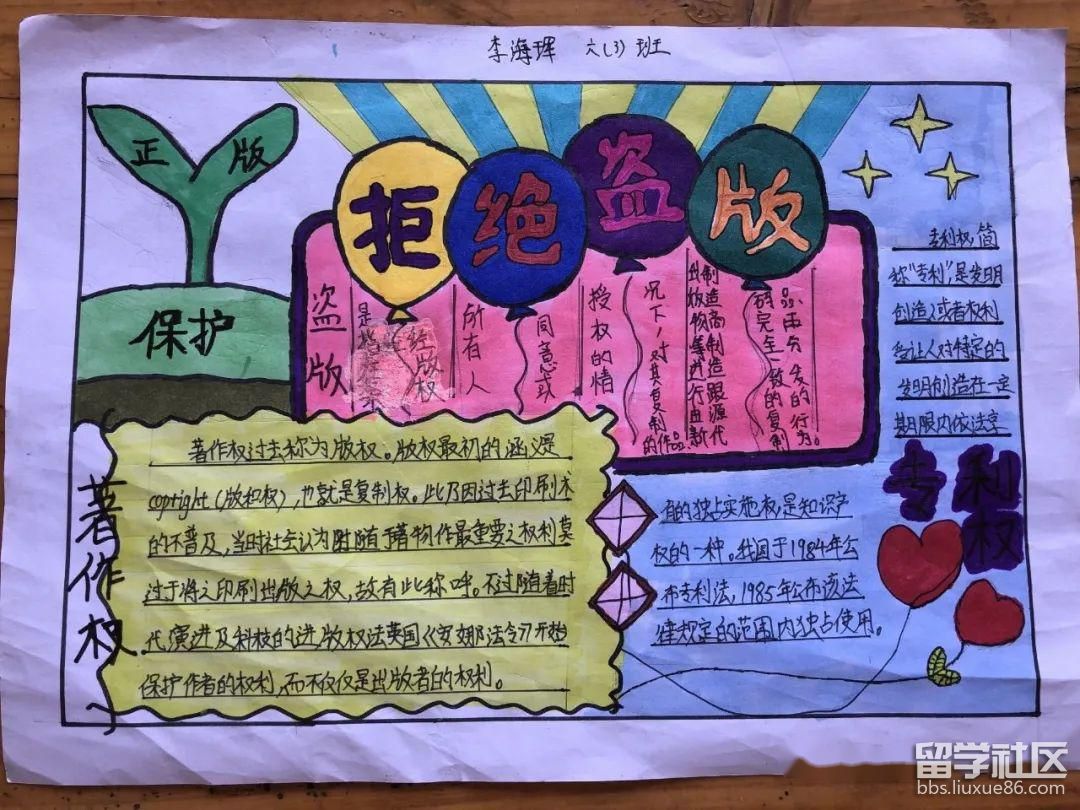 李海珲 六(3)班
正版
保护
拒绝盗版
盗版
是指在未
经版权
所有人
同意或
授权的情
况下,对其复制
的作品
出版物等进行
由新代
制造商制造跟源
码完全一致的复制
品、再分发的行为。
著作权
著作权过去称为版权。版权最初的涵义是
copright(版和权),也就是复制权。此乃因过去印刷术
的不普及,当时社会认为附随于著物作最重要之权利莫
过于将之印刷出版之权,故有此称呼。不过随着时
代演进及科技的进,版权法英国《安娜法令》开始
保护作者的权利,而不仅仅是出版者的权利。
专利权,简
称“专利”,是发明
创造人或者权利
受让人对特定的
发明创造在一定
期限内依法享
专利权
有的独占实施权,是知识产
权的一种。我国于1984年公
布专利法,1985年公布该法
律规定的范围内独占使用。
留学社区
bbs.liuxue86.com